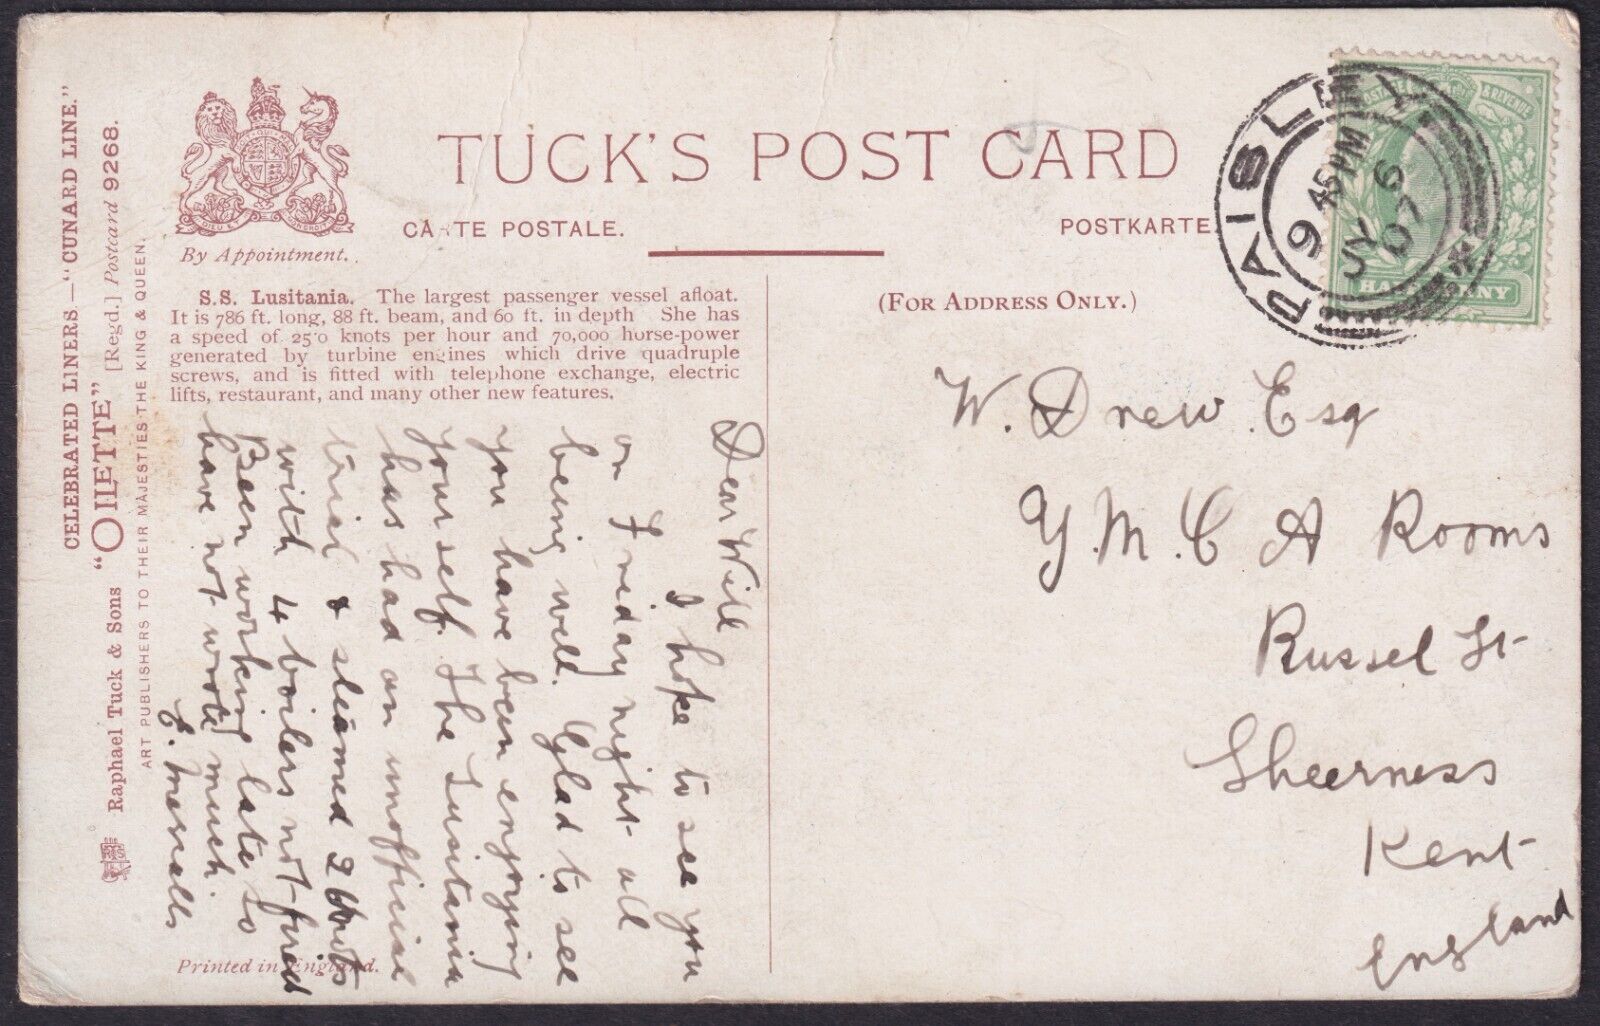 CELEBRATED LINERS—"CUNARD LINE."
Raphael Tuck & Sons "OILETTE" [Regd.] Postcard 9268.
ART PUBLISHERS TO THEIR MAJESTIES THE KING & QUEEN.
By Appointment.
TUCK'S POST CARD
CARTE POSTALE.
POSTKARTE.
S.S. Lusitania. The largest passenger vessel afloat.
It is 786 ft. long, 88 ft. beam, and 60 ft. in depth She has
a speed of 25·0 knots per hour and 70,000 horse-power
generated by turbine engines which drive quadruple
screws, and is fitted with telephone exchange, electric
lifts, restaurant, and many other new features.
Dear Will
I hope to see you
on Friday night all
being well. Glad to see
you have been enjoying
yourself. The Lusitania
has had an unofficial
trial & steamed 26 knots
with 4 boilers not fired
Been working late so
have not wrote much
Printed in England.
(FOR ADDRESS ONLY.)
W. Drew Esq
Y.M.C A Rooms
Russel St
Sheerness
Kent
England
PAISLEY.
9 45 PM
JY 6
07
POSTAGE & REVENUE
HALFPENNY